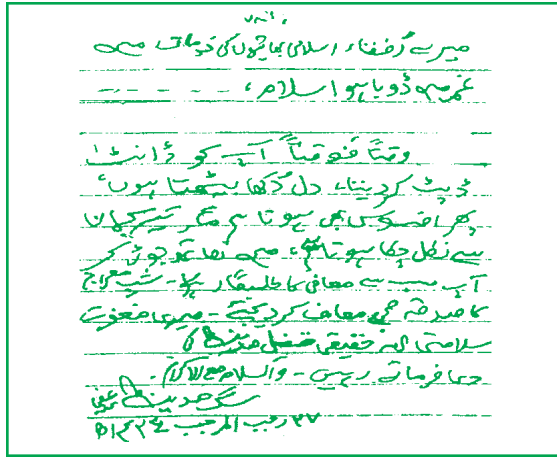 ۷۸۶
میرے رُفقاء اسلامی بھائیوں کی خدمات میں
غم میں ڈوبا ہوا سلام، - - - - -
وقتاً فوقتاً آپ کو ڈانٹ
ڈپٹ کر دیتا، دل دُکھا بیٹھتا ہوں،
پھر افسوس بھی ہوتا ہے مگر تیر کمان
سے نکل چکا ہوتا ہے، میں ہاتھ جوڑ کر
آپ سب سے معافی کا طلبگار ہوں۔ شبِ معراج
کا صدقہ مجھے معاف کر دیجئے۔ میری مغفرت
سلامتی اور حقیقی قفل مدینہ کی
دعا فرماتے رہیں۔ والسلام مع الاکرام۔
سگِ مدینہ عفی عنہ
۲۷ رجب المرجب ۱۴۲۴ھ